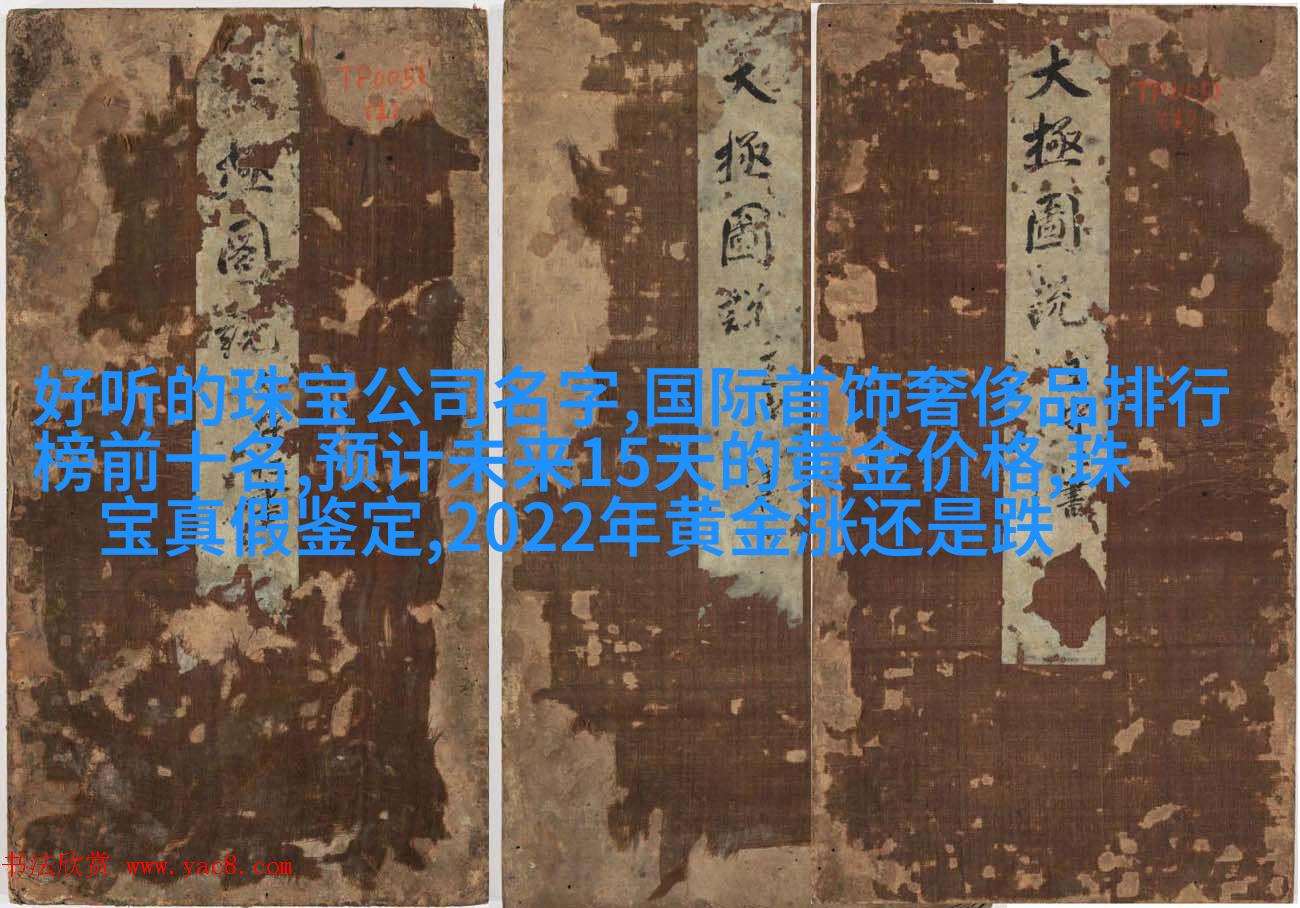 TP0051
(1)
極圖說
大極圖說
大極圖説
書
好听的珠宝公司名字,国际首饰奢侈品排行
榜前十名,预计未来15天的黄金价格,珠
宝真假鉴定,2022年黄金涨还是跌
书法欣赏 www.yac8.com